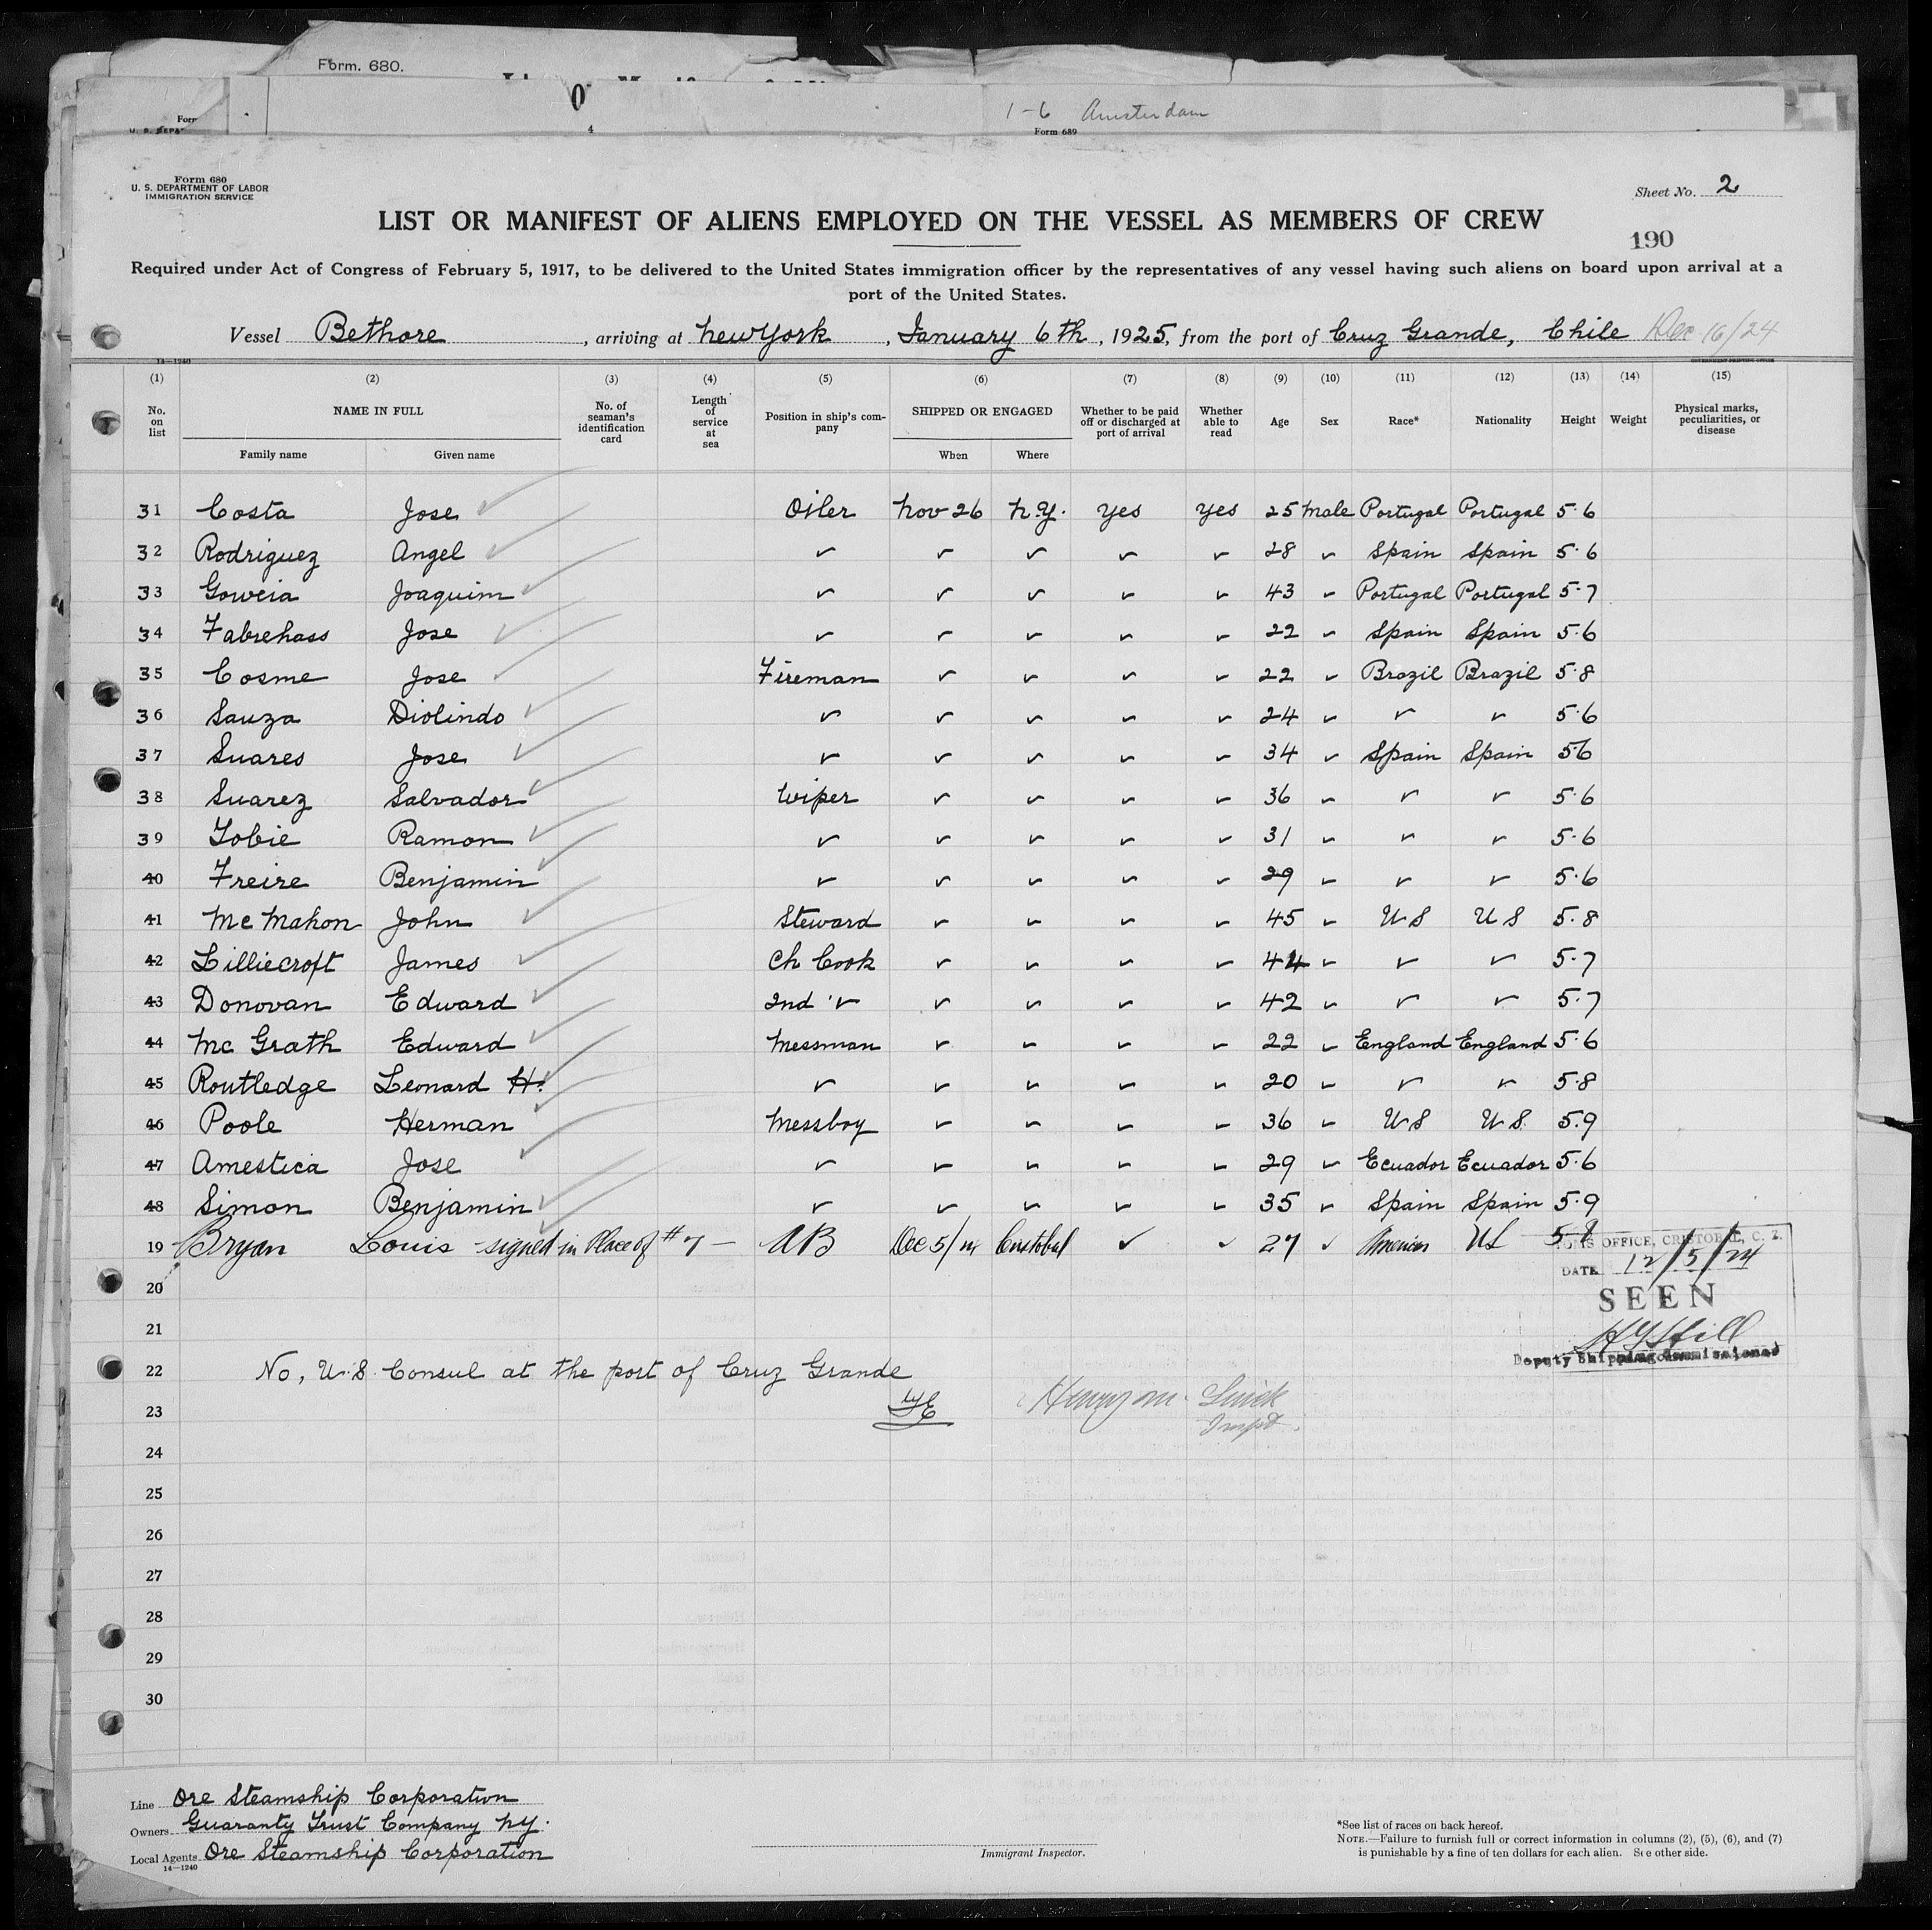 Form. 680.
1-6 Amsterdam
Form 689
4
Form 680
U. S. DEPARTMENT OF LABOR
IMMIGRATION SERVICE
Sheet No. 2
LIST OR MANIFEST OF ALIENS EMPLOYED ON THE VESSEL AS MEMBERS OF CREW
190
Required under Act of Congress of February 5, 1917, to be delivered to the United States immigration officer by the representatives of any vessel having such aliens on board upon arrival at a
port of the United States.
Vessel Bethore, arriving at New York, January 6th, 1925, from the port of Cruz Grande, Chile Dec 16/24
14—1240
(1) (2) (3) (4) (5) (6) (7) (8) (9) (10) (11) (12) (13) (14) (15)
No. on list NAME IN FULL No. of seaman's identification card Length of service at sea Position in ship's company SHIPPED OR ENGAGED Whether to be paid off or discharged at port of arrival Whether able to read Age Sex Race* Nationality Height Weight Physical marks, peculiarities, or disease
Family name Given name When Where
31 Costa Jose ✓ Oiler Nov 26 N.Y. Yes Yes 25 Male Portugal Portugal 5.6
32 Rodriguez Angel ✓ ✓ ✓ ✓ ✓ ✓ 28 ✓ Spain Spain 5.6
33 Goweia Joaquim ✓ ✓ ✓ ✓ ✓ ✓ 43 ✓ Portugal Portugal 5.7
34 Fabrehass Jose ✓ ✓ ✓ ✓ ✓ ✓ 22 ✓ Spain Spain 5.6
35 Cosme Jose ✓ Fireman ✓ ✓ ✓ ✓ 22 ✓ Brazil Brazil 5.8
36 Sauza Diolindo ✓ ✓ ✓ ✓ ✓ ✓ 24 ✓ ✓ ✓ 5.6
37 Suares Jose ✓ ✓ ✓ ✓ ✓ ✓ 34 ✓ Spain Spain 5.6
38 Suarez Salvador ✓ Wiper ✓ ✓ ✓ ✓ 36 ✓ ✓ ✓ 5.6
39 Tobie Ramon ✓ ✓ ✓ ✓ ✓ ✓ 31 ✓ ✓ ✓ 5.6
40 Freire Benjamin ✓ ✓ ✓ ✓ ✓ ✓ 29 ✓ ✓ ✓ 5.6
41 McMahon John ✓ Steward ✓ ✓ ✓ ✓ 45 ✓ U S U S 5.8
42 Lilliecroft James ✓ Ch Cook ✓ ✓ ✓ ✓ 44 ✓ ✓ ✓ 5.7
43 Donovan Edward ✓ 2nd ✓ ✓ ✓ ✓ ✓ 42 ✓ ✓ ✓ 5.7
44 Mc Grath Edward ✓ Messman ✓ ✓ ✓ ✓ 22 ✓ England England 5.6
45 Routledge Leonard H. ✓ ✓ ✓ ✓ ✓ ✓ 20 ✓ ✓ ✓ 5.8
46 Poole Herman ✓ Messboy ✓ ✓ ✓ ✓ 36 ✓ U S U S. 5.9
47 Amestica Jose ✓ ✓ ✓ ✓ ✓ ✓ 29 ✓ Ecuador Ecuador 5.6
48 Simon Benjamin ✓ ✓ ✓ ✓ ✓ ✓ 35 ✓ Spain Spain 5.9
19 Bryan Louis signed in Place of #7 — AB Dec 5/24 Cristobal ✓ ✓ 27 ✓ American US 5-8
OFFICE, CRISTOBAL, C. Z.
DATE 12/5/24
SEEN
Deputy Shipping Commissioner
20
21
22 No, U.S. Consul at the port of Cruz Grande
23
24
25
26
27
28
29
30
Line Ore Steamship Corporation
Owners Guaranty Trust Company N.Y.
Local Agents Ore Steamship Corporation
14—1240
Immigrant Inspector.
*See list of races on back hereof.
NOTE.—Failure to furnish full or correct information in columns (2), (5), (6), and (7)
is punishable by a fine of ten dollars for each alien. See other side.